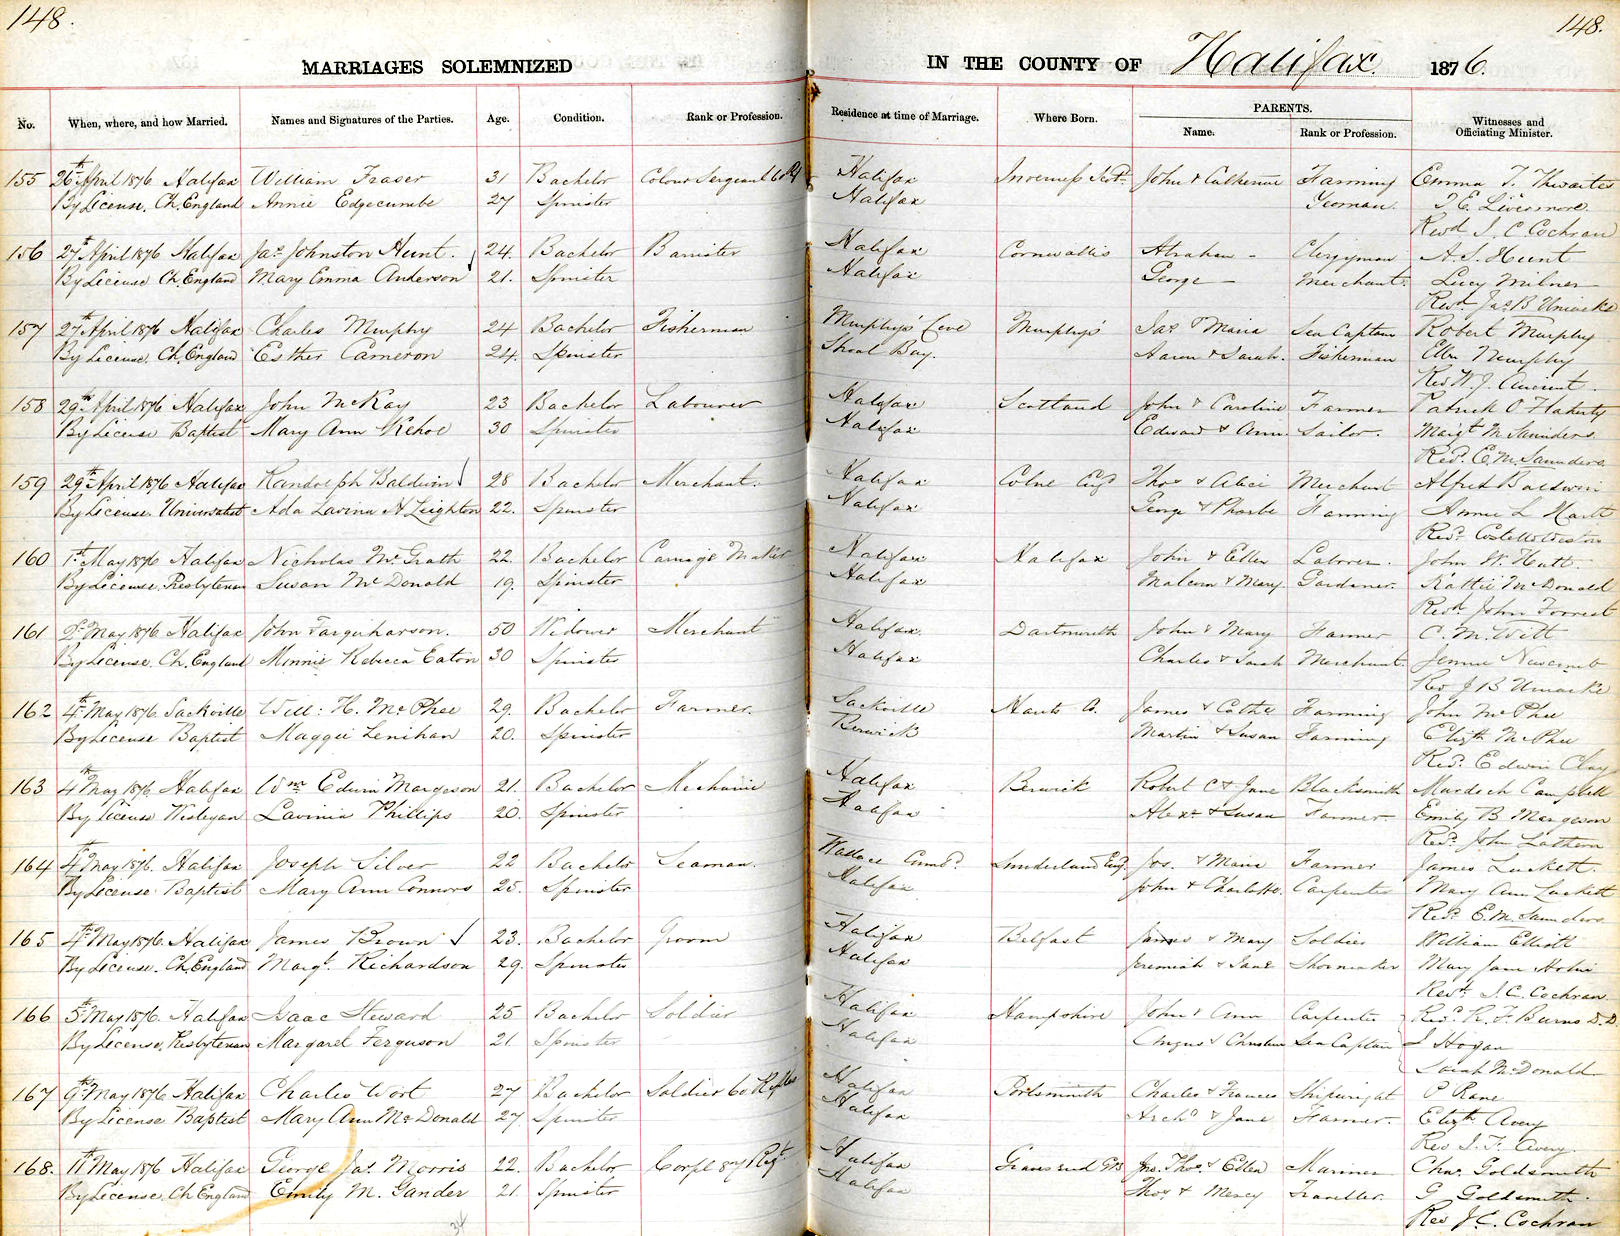 148.
148.
MARRIAGES SOLEMNIZED IN THE COUNTY OF Halifax. 1876.
No. When, where, and how Married. Names and Signatures of the Parties. Age. Condition. Rank or Profession. Residence at time of Marriage. Where Born. PARENTS. Name. Rank or Profession. Witnesses and Officiating Minister.
155 26th April 1876 Halifax William Fraser 31 Bachelor Colour Sergeant 60 Halifax Inverness Scot. John & Catherine Farming Emma T. Thwaites
By License. Ch. England Annie Edgecumbe 27 Spinster Halifax Yeoman. T. E. Livermore.
Revd J. C. Cochran
156 27th April 1876 Halifax Jas Johnston Hunt. 24. Bachelor Barrister Halifax Cornwallis Abraham - Clergyman A. S. Hunt
By License Ch. England Mary Emma Anderson 21. Spinster Halifax George - Merchant. Lucy Milner
Revd Jas. B Uniacke
157 27th April 1876 Halifax Charles Murphy 24 Bachelor Fisherman Murphys' Cove Murphys' Jas & Maria Sea Captain Robert Murphy
By License. Ch. England Esther Cameron 24. Spinster Shoal Bay. Aaron & Sarah. Fisherman Ellen Murphy
Rev W. J. Ancient.
158 29th April 1876 Halifax John McKay 23 Bachelor Labourer Halifax Scotland John & Caroline Farmer Patrick O Flaherty
By License Baptist Mary Ann Kehoe 30 Spinster Halifax Edward & Ann Sailor. Margt M Saunders.
Revd. E. M. Saunders
159 29th April 1876 Halifax Randolph Baldwin 28 Bachelor Merchant. Halifax Colne Engd Thos & Alice Merchant Alfred Baldwin
By License. Universalist Ada Lavina A Leighton 22. Spinster Halifax George & Phoebe Farming Annie L
Revd. Costello Weston
160 1st May 1876 Halifax Nicholas McGrath 22. Bachelor Carriage Maker Halifax Halifax John & Ellen Laborer. John W. Hutt.
By License. Presbyterian Susan McDonald 19. Spinster Halifax Malcom & Mary Gardener. Kattie McDonald
Revd John Forrest
161 2d May 1876 Halifax John Farquharson. 50 Widower Merchant Halifax. Dartmouth John & Mary Farmer C. M. Witt
By License. Ch. England Minnie Rebecca Eaton 30 Spinster Halifax Charles & Sarah Merchant. Jennie Newcomb
Rev J B Uniacke
162 4th May 1876 Sackville Will: H. McPhee 29. Bachelor Farmer. Sackville Hants Co. James & Cathe Farming John McPhee
By License Baptist Maggie Lenihan 20. Spinster Berwick Martin & Susan Farming Elizth McPhee
Revd. Edwin Clay
163 4th May 1876. Halifax Wm Edwin Margeson 21. Bachelor Mechanic Halifax Berwick Robert C & Jane Blacksmith Murdoch Campbell
By License Wesleyan Lavinia Phillips 20. Spinster Halifax Alexr & Susan Farmer Emily B Margeson
Revd. John Lathern
164 4th May 1876. Halifax Joseph Silver 22 Bachelor Seaman. Wallace Cumbd. Sunderland Eng. Jos. & Maria Farmer James Luckett.
By License. Baptist Mary Ann Connors 25. Spinster Halifax John & Charlotte. Carpenter Mary Ann Luckett
Revd. E. M. Saunders
165 4th May 1876. Halifax James Brown 23. Bachelor Groom Halifax Belfast James & Mary Soldier William Elliott
By License. Ch. England Margt. Richardson 29. Spinster Halifax Jeremiah & Jane Shoemaker Mary Jane
Revd. J. C. Cochran
166 5th May 1876. Halifax Isaac Steward 25 Bachelor Soldier Halifax Hampshire John & Ann Carpenter Revd. R. F. Burns D.D.
By License. Presbyterian Margaret Ferguson 21. Spinster Halifax Angus & Christina Sea Captain J Hogan
Sarah McDonald
167 9th May 1876 Halifax Charles Wort 27 Bachelor Soldier 60 Rifles Halifax Portsmouth Charles & Frances Shipwright P Rane
By License Baptist Mary Ann McDonald 27. Spinster Halifax Archd & Jane Farmer. Elizth Avery
Rev J. F. Avery.
168. 11th May 1876 Halifax George Jas. Morris 22. Bachelor Corpl 87 Regt. Halifax Gravesend GB Jno. Thos. & Ellen Mariner Chas. Goldsmith
By License. Ch England Emily M. Gander 21. Spinster Halifax Thos & Mercy Traveller. G Goldsmith.
Rev J. C. Cochran
34